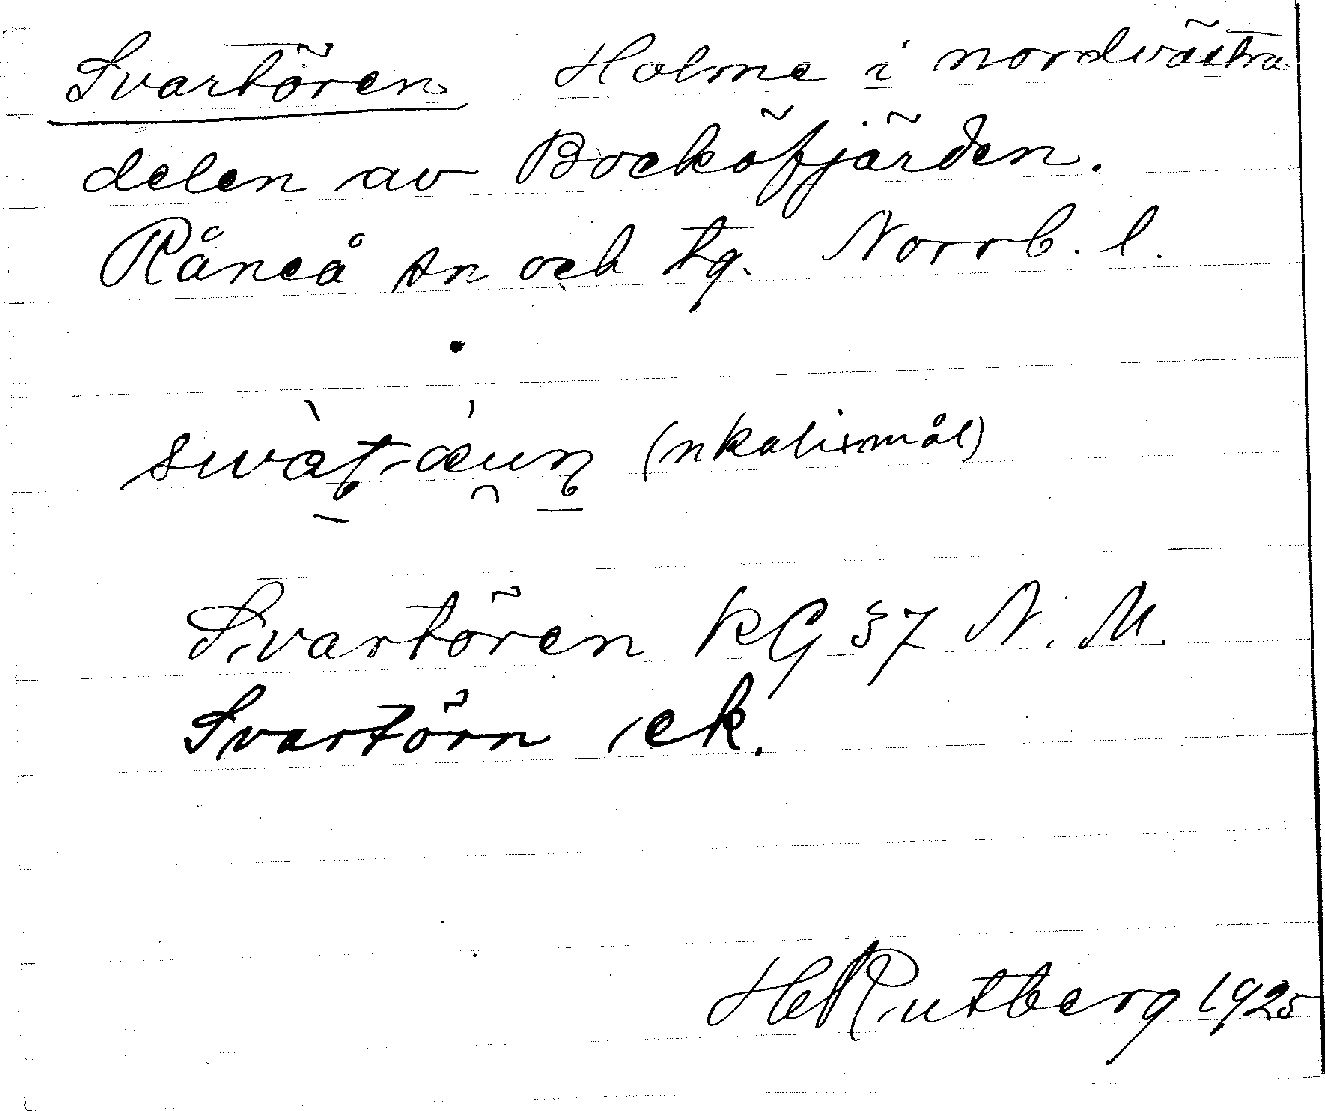 Svartören Holme i nordvästra
delen av Bocköfjärden.
Råneå sn och tg. Norrb. l.
(nkalixmål)
Svartören KG 37 N. M.
Svartörn ek.
Rutberg 1925